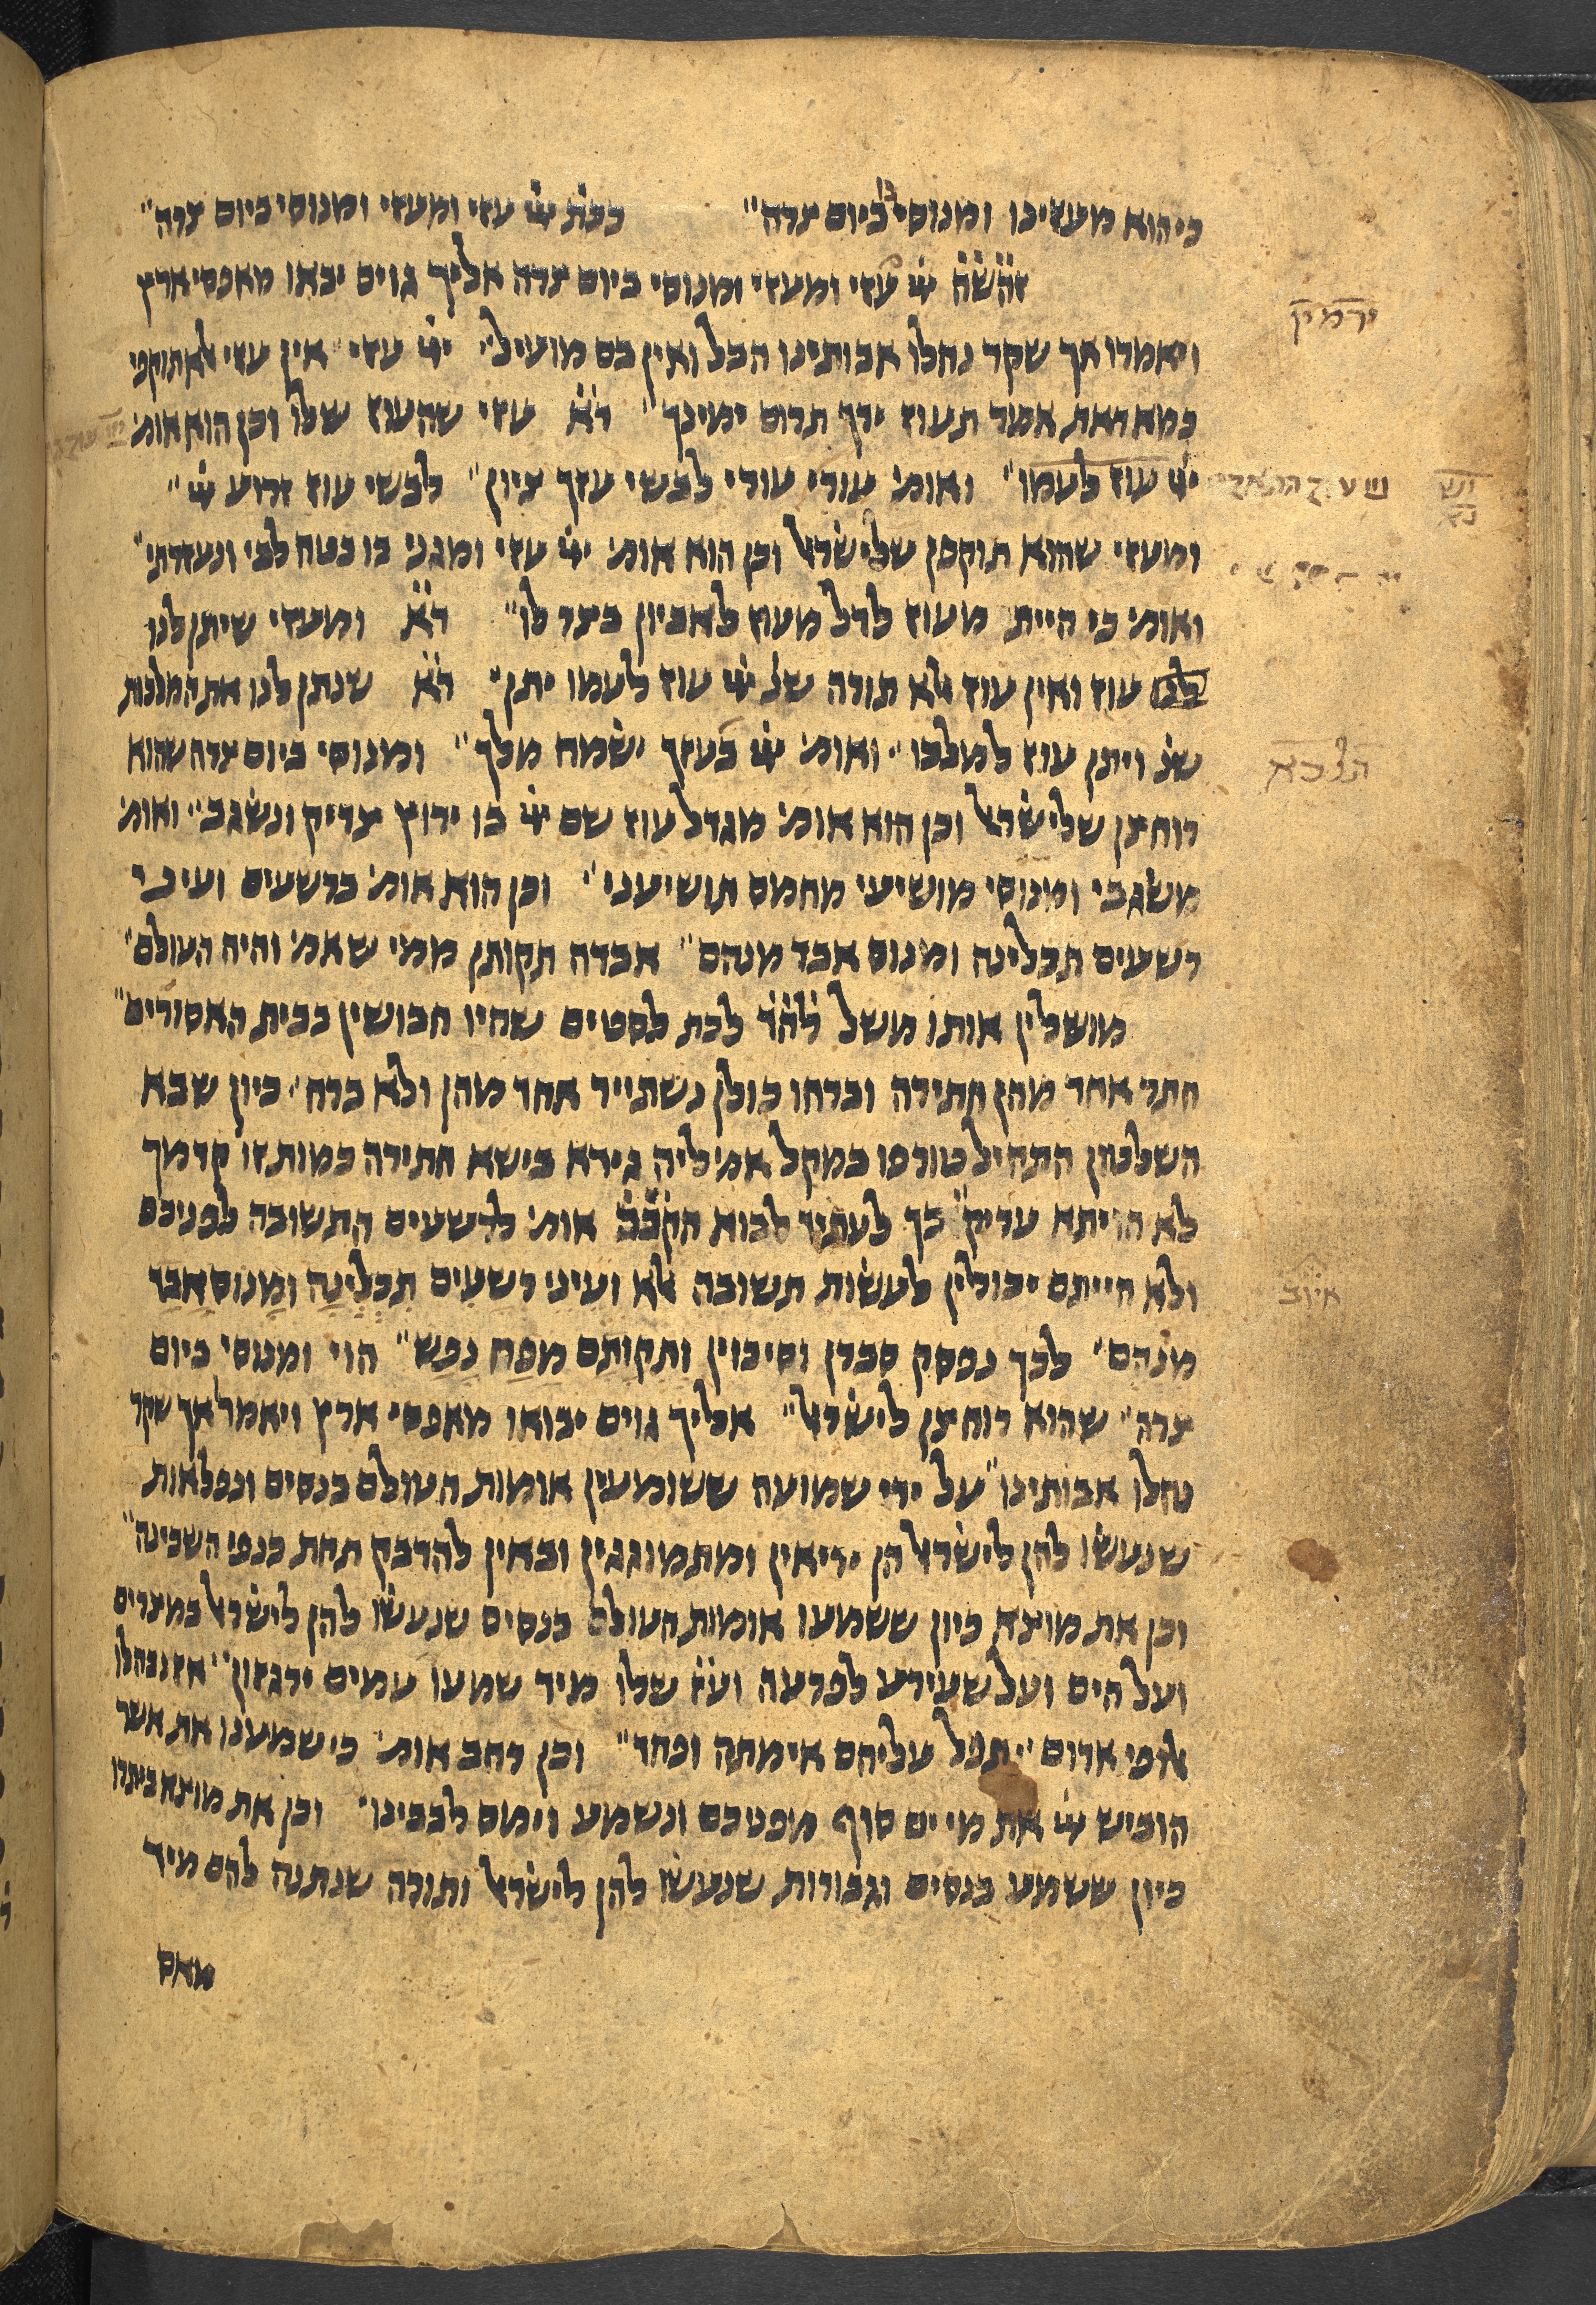 כי הוא מעוזינו ומנוסי ביום צרה״ ככת׳ ייי עזי ומעזי ומנוסי ביום צרה״
זה שה ייי עזי ומעזי ומנוסי ביום צרה אליך גוים יבאו מאפסי ארץ
ויאמרו אך שקר נחלו אבותינו הבל ואין בם מועיל״ ייי עזי אין עזי אלא תוקפי
כמא דאת אמר תעוז ידך תרום ימינך״ ד״א עזי שהעוז שלו וכן הוא אומ׳
ייי עוז לעמו״ ואומ׳ עורי עורי לבשי עזך ציון״ לבשי עוז זרוע ייי״
ומעזי שהוא תוקפן שלישראל וכן הוא אומ׳ ייי עזי ומגני בו בטח לבי ונעזרתי״
ואומ׳ כי היית מעוז לדל מעוז לאביון בצר לו״ ד״א ומעזי שיתן לנו
לנו עוז ואין עוז אלא תורה שנ׳ ייי עוז לעמו יתן״ ד״א שנתן לנו את המלכות
שנ׳ ויתן עוז למלכו״ ואומ׳ ייי בעזך ישמח מלך״ ומנוסי ביום צרה שהוא
רוחצן שלישראל וכן הוא אומ׳ מגדל עוז שם ייי בו ירוץ צדיק ונשגב״ ואומ׳
משגבי ומנוסי מושיעי מחמס תושיעני״ וכן הוא אומ׳ ברשעים ועיני
רשעים תכלינה ומנוס אבד מנהם״ אבדה תקותן ממי שאמ׳ והיה העולם״
מושלין אותו משל לה״ד לכת לסטים שהיו חבושין בבית האסורים״
חתר אחד מהן חתירה וברחו כולן נשתייר אחד מהן ולא ברח״ כיון שבא
השלטון התחיל טורפו במקל אמ׳ ליה גירא בישא חתירה כמות זו קדמך
לא הויתא עריק״ כך לעתיד לבוא הקב״ה אומ׳ לרשעים התשובה לפניכם
ולא הייתם יכולין לעשות תשובה אלא ועיני רשעים תכלינה ומנוס אבד
מנהם״ לכך נפסק סברן וסיכוין ותקותם מפח נפש״ הוי ומנוסי ביום
צרה״ שהוא רוחצן לישראל״ אליך גוים יבואו מאפסי ארץ ויאמר אך שקר
נחלו אבותינו״ על ידי שמועה ששומעין אומות העולם בנסים ונפלאות
שנעשו להן לישראל הן יריאין ומתמוגגין ובאין להדבק תחת כנפי השכינה״
וכן את מוצא כיון ששמעו אומות העולם בנסים שנעשו להן לישראל במצרים
ועל הים ועל שעירע לפרעה וע״ז שלו מיד שמעו עמים ירגזון״ אז נבהלו
אלופי אדום״ תפל עליהם אימתה ופחד״ וכן רחב אומ׳ כי שמענו את אשר
הוביש ייי את מי ים סוף מפניכם ונשמע וימס לבבינו״ וכן את מוצא ביתרו
כיון ששמע בנסים וגבורות שנעשו להן לישראל ותורה שנתנה להם מיד
ירמיה
איוב